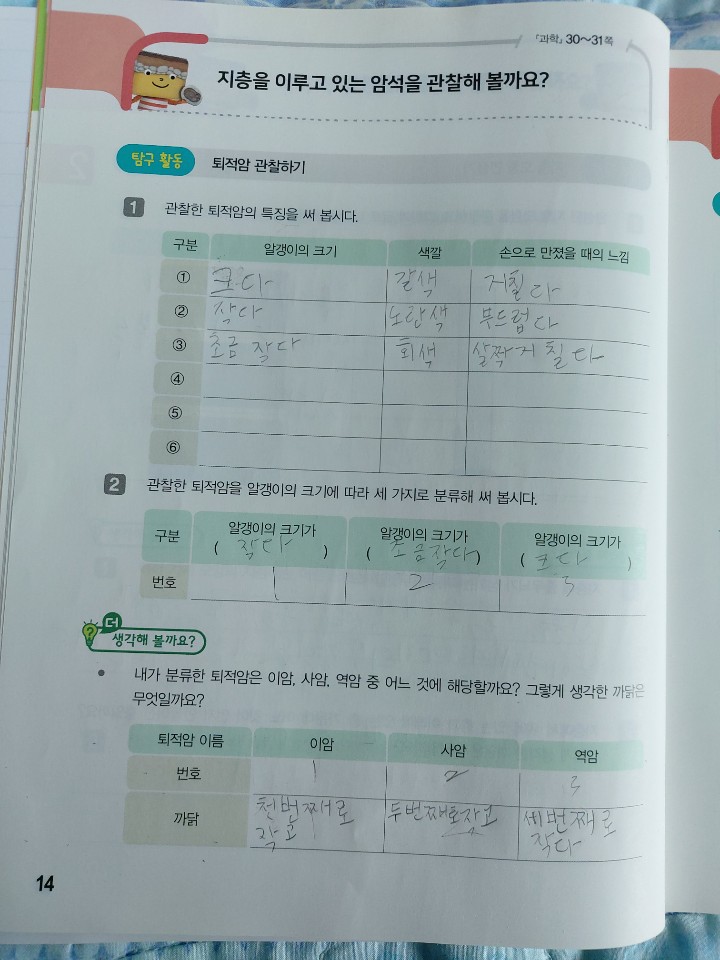 『과학』 30~31쪽
지층을 이루고 있는 암석을 관찰해 볼까요?
탐구 활동 퇴적암 관찰하기
1 관찰한 퇴적암의 특징을 써 봅시다.
구분 알갱이의 크기 색깔 손으로 만졌을 때의 느낌
① 크다 갈색 거칠다
② 작다 노란색 부드럽다
③ 조금 작다 회색 살짝 거칠다
④
⑤
⑥
2 관찰한 퇴적암을 알갱이의 크기에 따라 세 가지로 분류해 써 봅시다.
구분 알갱이의 크기가 알갱이의 크기가 알갱이의 크기가
( 작다 ) ( 조금작다 ) ( 크다 )
번호 1 2 3
더
생각해 볼까요?
• 내가 분류한 퇴적암은 이암, 사암, 역암 중 어느 것에 해당할까요? 그렇게 생각한 까닭은
무엇일까요?
퇴적암 이름 이암 사암 역암
번호 1 2 3
까닭 첫번째로 두번째로작고 세번째로
작고 작다
14